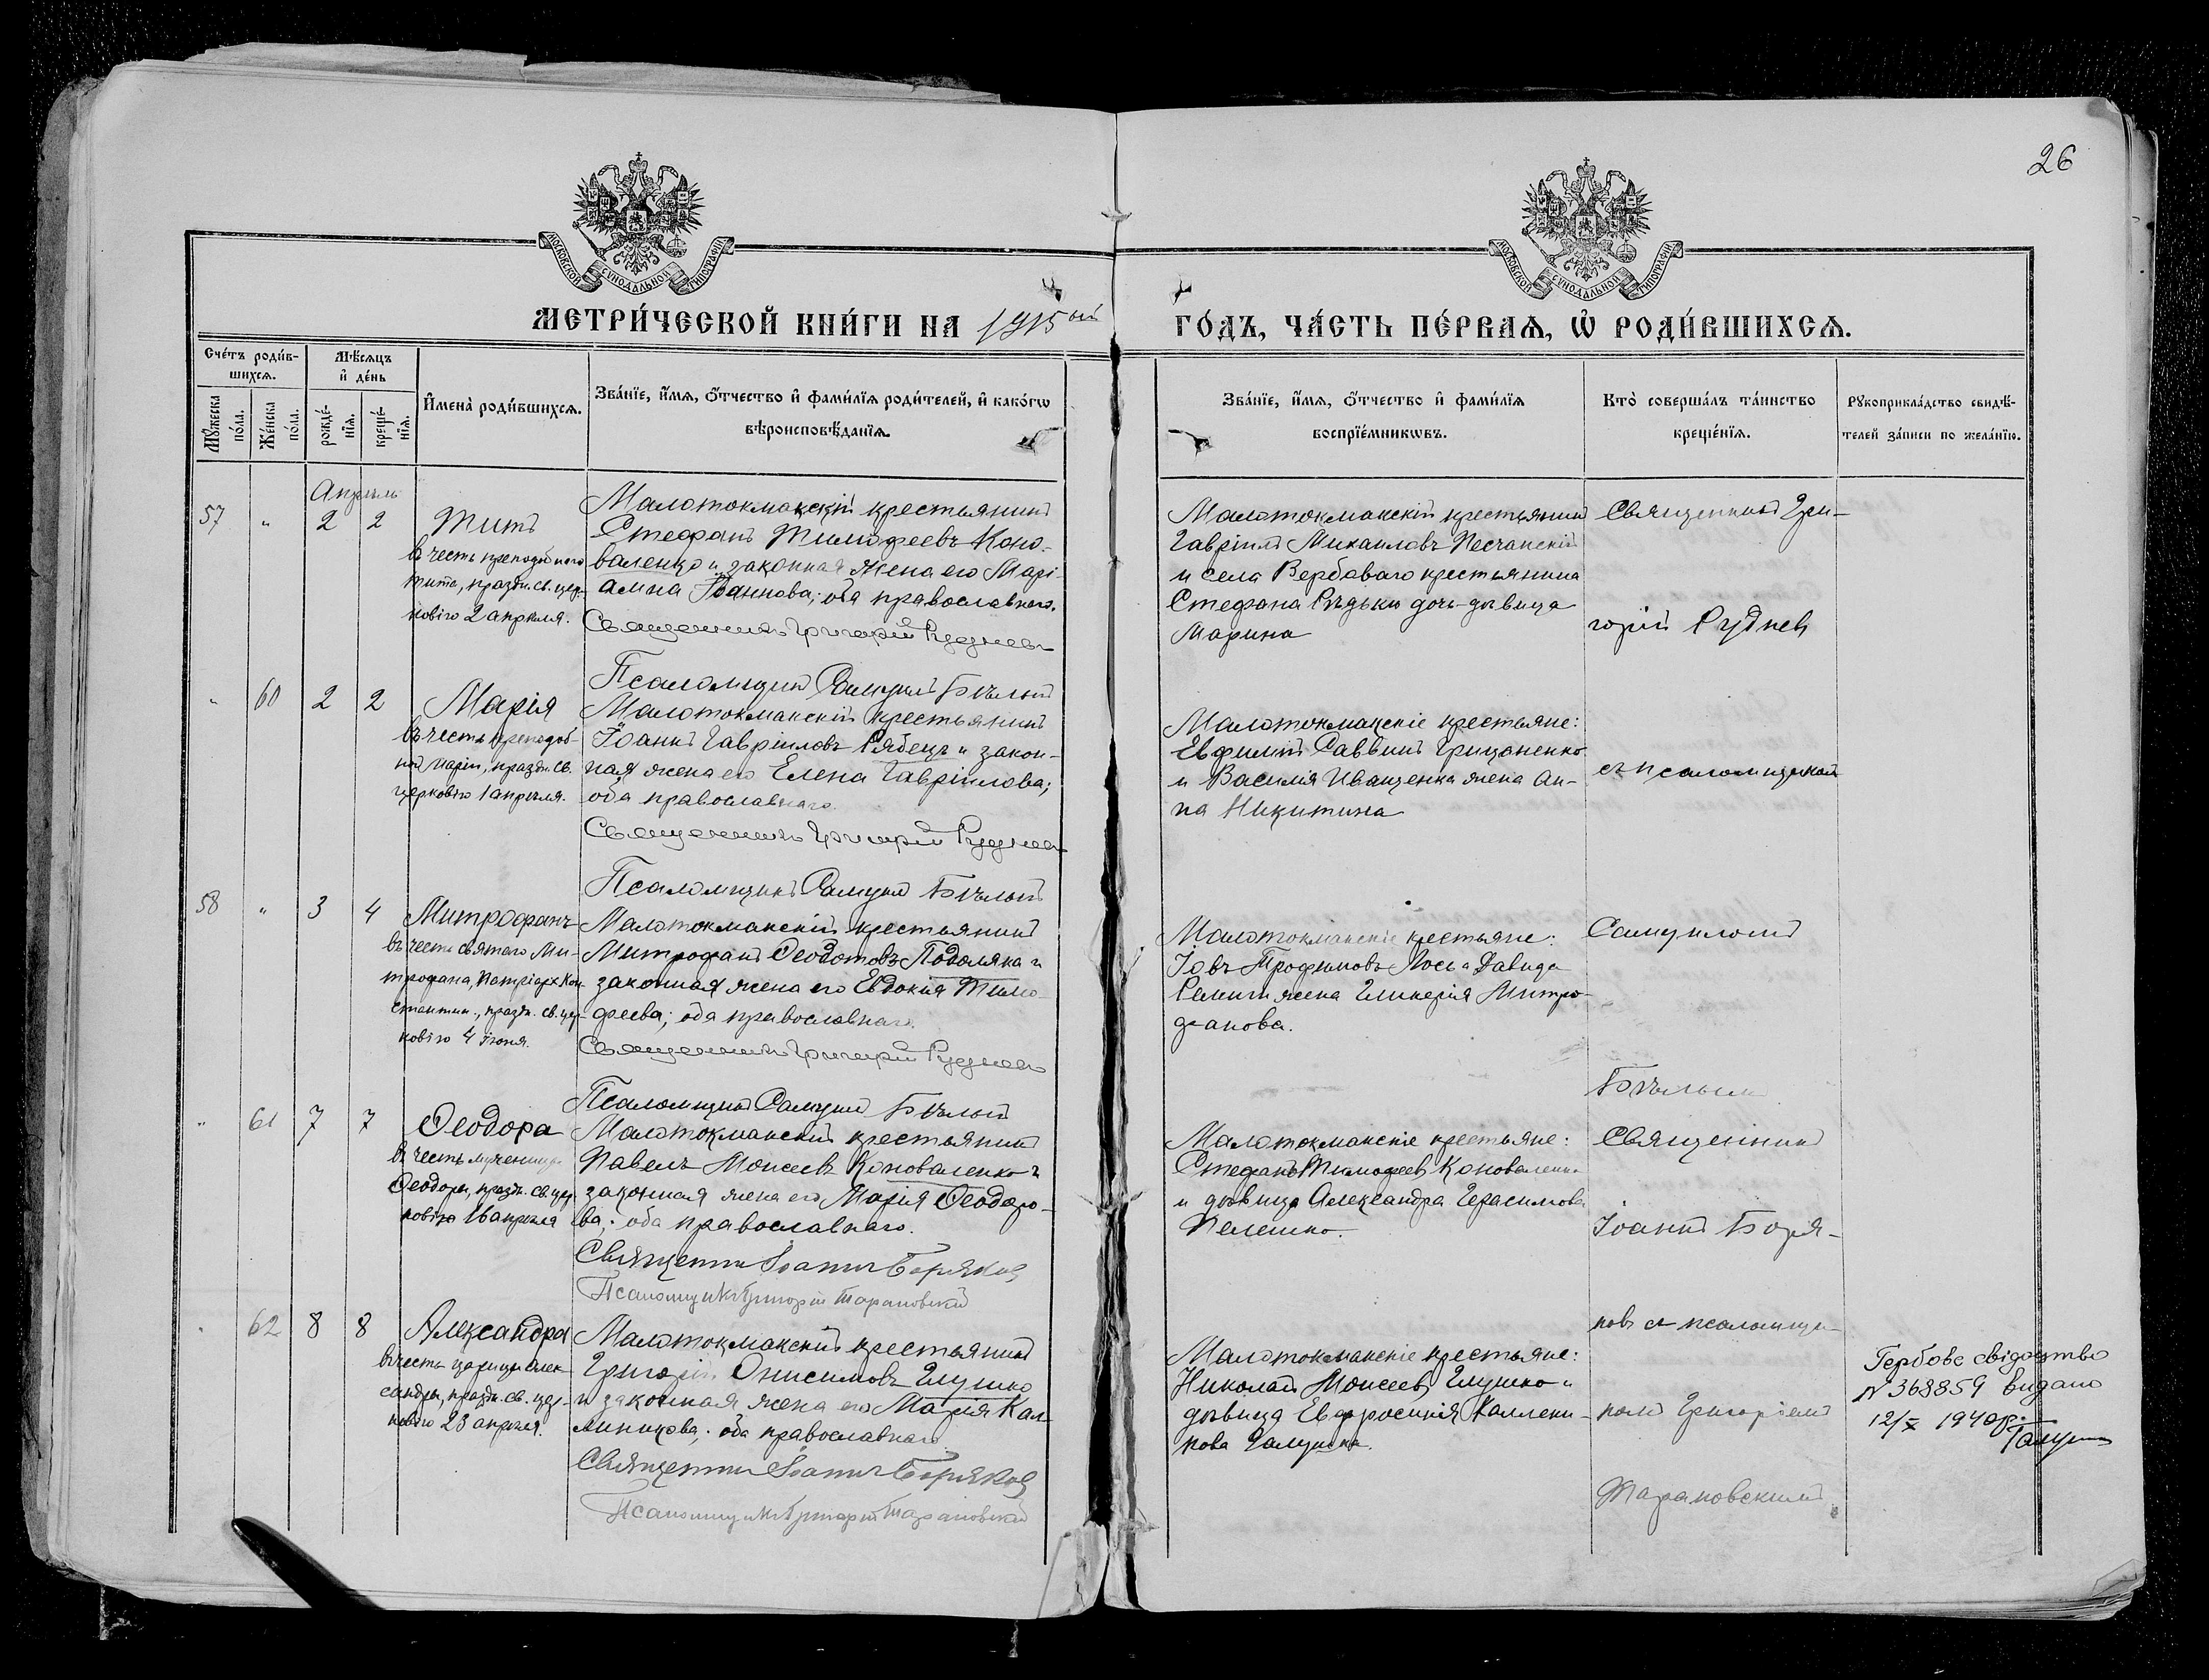 26
МОСКОВСКОЙ СѴНОДАЛЬНОЙ ТИПОГРАФІИ
МОСКОВСКОЙ СѴНОДАЛЬНОЙ ТИПОГРАФІИ
МЕТРИ́ЧЕСКОЙ КНИ́ГИ НА 1915ый ГО́ДЪ, ЧА́СТЬ ПЕ́РВАѦ, Ѽ РОДИ́ВШИХСѦ.
Сче́тъ роди́в-
шихсѧ.
Мѣ́сѧцъ
и҆ де́нь
Мꙋ́жеска
по́ла.
Же́нска
по́ла.
рожде́-
нїѧ.
креще́-
нїѧ.
И҆мена̀ роди́вшихсѧ.
Зва́нїе, и҆́мѧ, ѻ҆́тчество и҆ фами́лїѧ роди́телей, и҆ како́гѡ
вѣроисповѣ́данїѧ.
Зва́нїе, и҆́мѧ, ѻ҆́тчество и҆ фами́лїѧ
воспрїе́мникѡвъ.
Кто̀ соверша́лъ та́инство
креще́нїѧ.
Рꙋкоприкла́дство свидѣ́-
телей за́писи по жела́нїю.
Апрѣль
57 " 2 2
Титъ
въ честь преподобнаго
Тита, праздн. св. цер-
ковію 2 апрѣля.
Малотокмакскій крестьянинъ
Стефанъ Тимофеевъ Коно-
валенко и законная жена его Марі-
амна Іоаннова; оба православнаго.
Священникъ Григорій Рудневъ
Псаломщикъ Самуилъ Бѣлый
Малотокмакскій крестьянинъ
Гавріилъ Михаиловъ Песчанскій
и села Вербоваго крестьянина
Стефана Рѣдьки дочь-дѣвица
Марина
Священникъ Гри-
горій Рудневъ
" 60 2 2
Марія
въ честь преподоб-
ной Маріи, праздн. св.
церковію 1 апрѣля.
Малотокмакскій крестьянинъ
Іоаннъ Гавріиловъ Рябецъ и закон-
ная жена его Елена Гавріилова;
оба православнаго.
Священникъ Григорій Рудневъ
Псаломщикъ Самуилъ Бѣлый
Малотокмакскіе крестьяне:
Евфимій Саввинъ Грищаненко
и Василія Иващенка жена Ан-
на Никитина
съ псаломщикомъ
58 " 3 4
Митрофанъ
въ честь святаго Ми-
трофана, Патріарх Кон-
стантин., праздн. св. цер-
ковію 4 Іюня.
Малотокмакскій крестьянинъ
Митрофанъ Ѳеодотовъ Подоляка и
законная жена его Евдокія Тимо-
феева; оба православнаго.
Священникъ Григорій Рудневъ
Псаломщикъ Самуилъ Бѣлый
Малотокмакскіе крестьяне:
Іовъ Трофимовъ Лось и Давида
жена Гликерія Митро-
фанова.
Самуиломъ
Бѣлымъ
" 61 7 7
Ѳеодора
въ честь мученицы
Ѳеодоры, праздн. св. цер-
ковію 16 апрѣля
Малотокмакскій крестьянинъ
Павелъ Моисеевъ Коноваленко и
законная жена его Марія Ѳеодоро-
ва; оба православнаго.
Священникъ Іоаннъ Боряковъ
Псаломщикъ Григорій Тарановскій
Малотокмакскіе крестьяне:
Стефанъ Тимофеевъ Коноваленко
и дѣвица Александра Герасимова
Пелешко.
Священникъ
Іоаннъ Боря-
ковъ съ псаломщи-
" 62 8 8
Александра
въ честь царицы Алек-
сандры, праздн. св. цер-
ковію 23 апрѣля.
Малотокмакскій крестьянинъ
Григорій Онисимовъ Глушко
и законная жена его Марія Кал-
линикова; оба православнаго.
Священникъ Іоаннъ Боряковъ
Псаломщикъ Григорій Тарановскій
Малотокмакскіе крестьяне:
Николай Моисеевъ Глушко и
дѣвица Евфросинія Каллени-
кова Галушка.
комъ Григоріемъ
Тарановскимъ
Гербове свідоцтво
N 368859 видано
12/X 1940р.